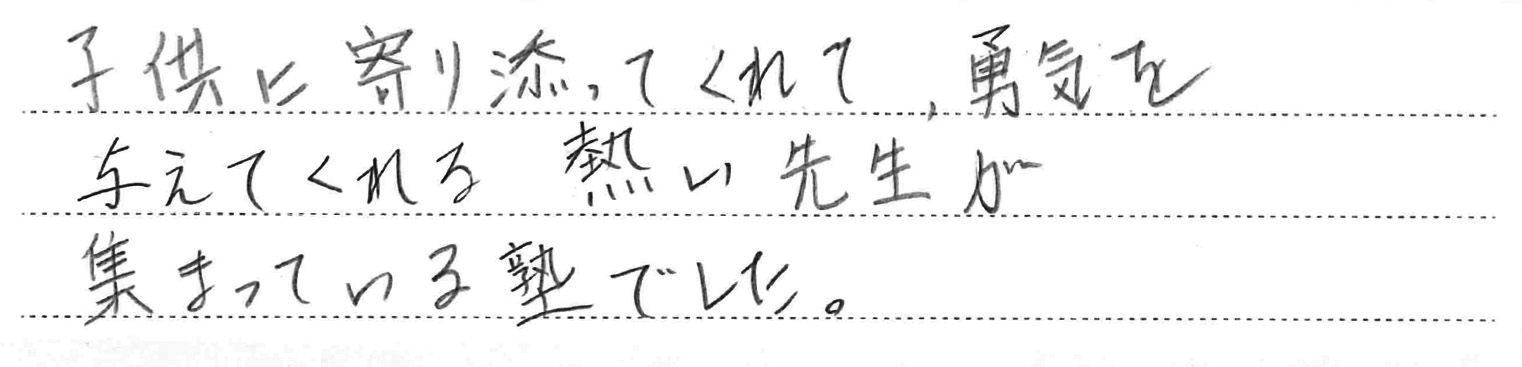 子供に寄り添ってくれて、勇気を
与えてくれる熱い先生が
集まっている塾でした。